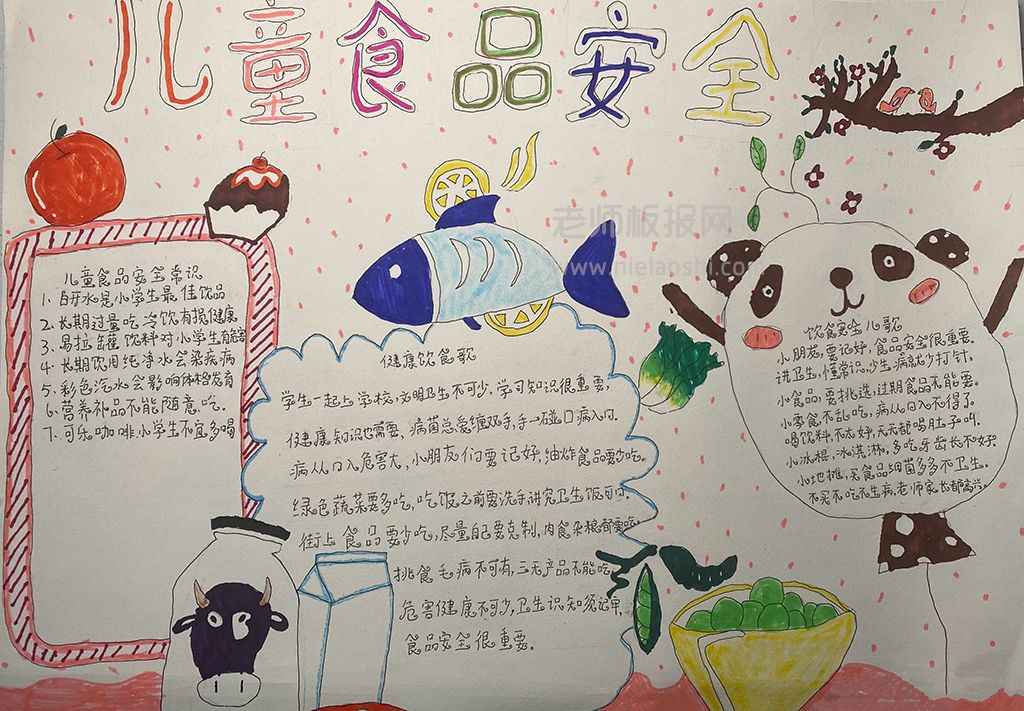 儿童食品安全
老师板报网
儿童食品安全常识
1、白开水是小学生最佳饮品
2、长期过量吃冷饮有损健康
3、易拉罐饮料对小学生有危害
4、长期饮用纯净水会染疾病
5、彩色汽水会影响体格发育
6、营养补品不能随意吃.
7、可乐咖啡小学生不宜多喝
健康饮食歌
学生一起上学校,文明卫生不可少,学习知识很重要,
健康知识也需要、病菌总爱缠双手,手一碰口病入口.
病从口入危害大,小朋友们要记好,油炸食品要少吃。
绿色蔬菜要多吃,吃饭之前要洗手讲究卫生饭可口.
街上食品要少吃,尽量自己要克制,肉食杂粮都要吃.
挑食毛病不可有,三无产品不能吃.
危害健康不可少,卫生识知须记牢
食品安全很重要。
饮食安全儿歌
小朋友,要记好,食品安全很重要.
讲卫生,懂常识,少生病就少打针.
小食品,要挑选,过期食品不能要.
小零食不乱吃,病从口入不得了.
喝饮料,不太好,天天都喝肚子叫.
小冰棍,冰淇淋,多吃牙齿长不好
小地摊,买食品细菌多多不卫生.
不买不吃不生病,老师家长都高兴.